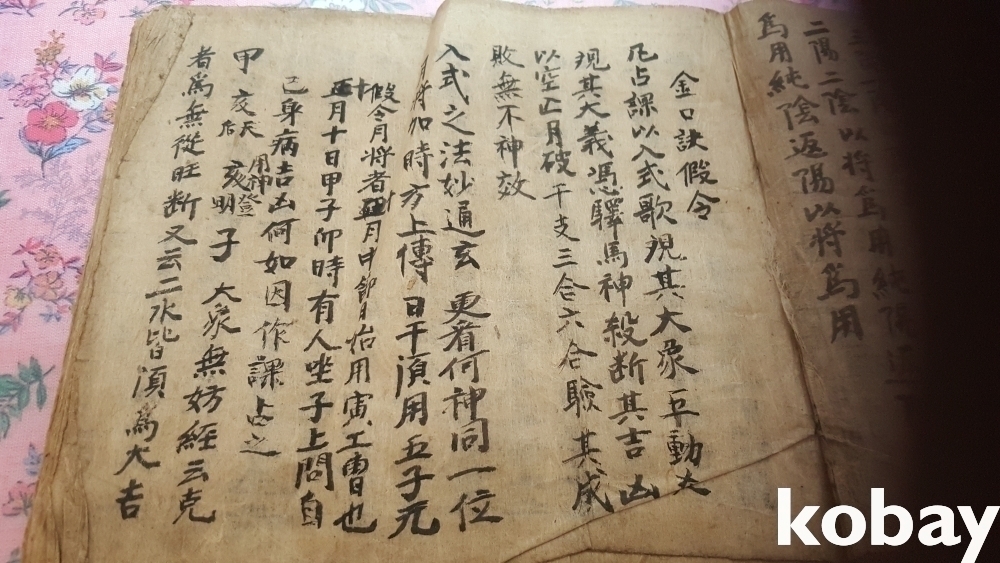 二陽二陰以將爲用純陰返
爲用純陰返陽以將爲用
金口訣假令
凡占課以入式歌現其大象五動爻
現其大義憑驛馬神殺斷其吉凶
以空亡月破干支三合六合驗其成
敗無不神效
入式之法妙通玄更看何神同一位
月將加時方上傳日干須用五子元
假令月將者正月中節后始用寅工曹也
正月十日甲子卯時有人坐子上問自
己身病吉凶何如因作課占之
甲
亥天后
用神
亥登明
子
大象無妨經云克
者爲無從旺断又云二水皆須爲大吉
kobay